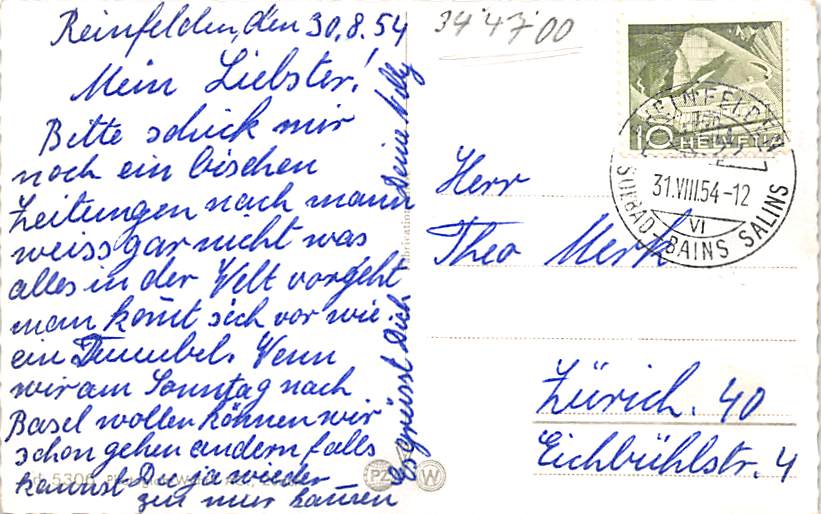 Reinfelden, den 30.8.54
Mein Liebster!
Bitte schick mir
noch ein bischen
Zeitungen nach mann
weiss gar nicht was
alles in der Welt vorgeht
man kom̄t sich vor wie
ein
Wenn
wir am Sonntag nach
Basel wollen können wir
schon gehen andern falls
kannst Du ja wieder
zu mur hausen
Es grüsst Dich
Deine Nelly
34'47'00
HELVETIA
10
RHEINFELDEN
31.VIII.54-12
VI
SOLBAD-BAINS SALINS
Herr
Theo Merk
Zürich. 40
Eichbühlstr. 4
5300
PZ
W